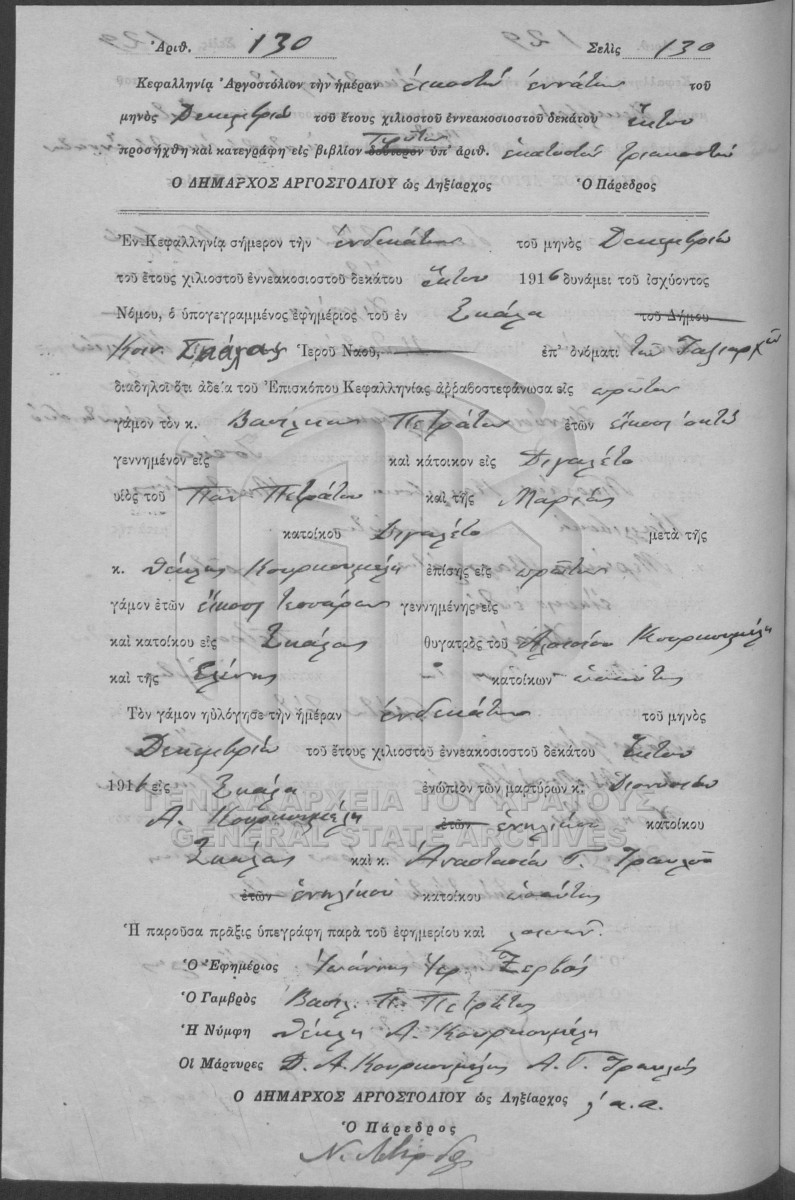 Ἀριθ. 130 Σελὶς 130
Κεφαλληνίᾳ Ἀργοστόλιον τὴν ἡμέραν εἰκοστὴν ἐννάτην τοῦ
μηνὸς Δεκεμβρίου τοῦ ἔτους χιλιοστοῦ ἐννεακοσιοστοῦ δεκάτου ἕκτου
προσήχθη καὶ κατεγράφη εἰς βιβλίον δεύτερον ὑπ' ἀριθ. ἑκατοστὸν τριακοστὸν
Ο ΔΗΜΑΡΧΟΣ ΑΡΓΟΣΤΟΛΙΟΥ ὡς Ληξίαρχος Ὁ Πάρεδρος
Ἐν Κεφαλληνίᾳ σήμερον τὴν ἑνδεκάτην τοῦ μηνὸς Δεκεμβρίου
τοῦ ἔτους χιλιοστοῦ ἐννεακοσιοστοῦ δεκάτου ἕκτου 1916 δυνάμει τοῦ ἰσχύοντος
Νόμου, ὁ ὑπογεγραμμένος ἐφημέριος τοῦ ἐν Σκάλᾳ τοῦ Δήμου
Κοιν. Σκάλας Ἱεροῦ Ναοῦ, ἐπ' ὀνόματι τῶν Ταξιαρχῶν
διαδηλοῖ ὅτι ἀδείᾳ τοῦ Ἐπισκόπου Κεφαλληνίας ἀρραβοστεφάνωσα εἰς πρῶτον
γάμον τὸν κ. Πετράτον ἐτῶν εἴκοσι ὀκτὼ
γεννημένον εἰς καὶ κάτοικον εἰς Διγαλέτο
υἱὸς τοῦ Παν. Πετράτου καὶ τῆς Μαρίας
κατοίκου Διγαλέτο μετὰ τῆς
κ. Θέκλης Κουρκουμέλη ἐπίσης εἰς πρῶτον
γάμον ἐτῶν εἴκοσι τεσσάρων γεννημένης εἰς
καὶ κατοίκου εἰς Σκάλας θυγατρὸς τοῦ Κουρκουμέλη
καὶ τῆς Ἑλένης κατοίκων
Τὸν γάμον ηὐλόγησε τὴν ἡμέραν ἑνδεκάτην τοῦ μηνὸς
Δεκεμβρίου τοῦ ἔτους χιλιοστοῦ ἐννεακοσιοστοῦ δεκάτου ἕκτου
1916 εἰς Σκάλα ἐνώπιον τῶν μαρτύρων κ. Διονυσίου
Α. Κουρκουμέλη ἐτῶν ἐνηλίκου κατοίκου
Σκάλας καὶ κ. Ἀναστασίου Γ. Τραυλοῦ
ἐτῶν ἐνηλίκου κατοίκου
Ἡ παροῦσα πρᾶξις ὑπεγράφη παρὰ τοῦ ἐφημερίου καὶ λοιπῶν.
Ὁ Ἐφημέριος Ἰωάννης Ἱερ. Ζερβός
Ὁ Γαμβρὸς Βασιλ. Π. Πετράτος
Ἡ Νύμφη Θέκλη Α. Κουρκουμέλη
Οἱ Μάρτυρες Δ. Α. Κουρκουμέλης Α. Γ. Τραυλός
Ο ΔΗΜΑΡΧΟΣ ΑΡΓΟΣΤΟΛΙΟΥ ὡς Ληξίαρχος
Ὁ Πάρεδρος
ΓΕΝΙΚΑ ΑΡΧΕΙΑ ΤΟΥ ΚΡΑΤΟΥΣ
GENERAL STATE ARCHIVES